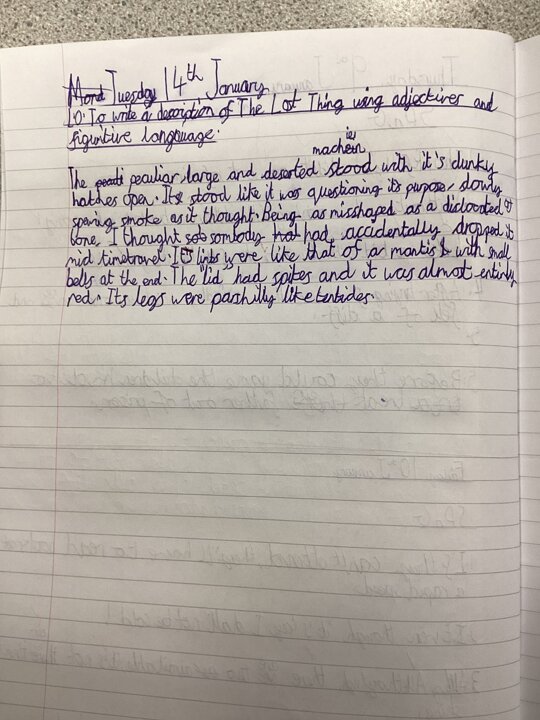 Tuesday 14th January
L.O: To write a description of The Lost Thing using adjectives and
figuritive language.
The peculiar, large and deserted machein stood with it's clunky
hatches open. It stood like it was questioning its purpose, slowly
spewing smoke as it thought. Being as misshaped as a dislocated
bone, I thought sombody had accidentally dropped it
mid timetravel. Its limbs were like that of a mantis with small
bells at the end. The lid had spikes and it was almost entirely
red. Its legs were parshilly like tenticles.